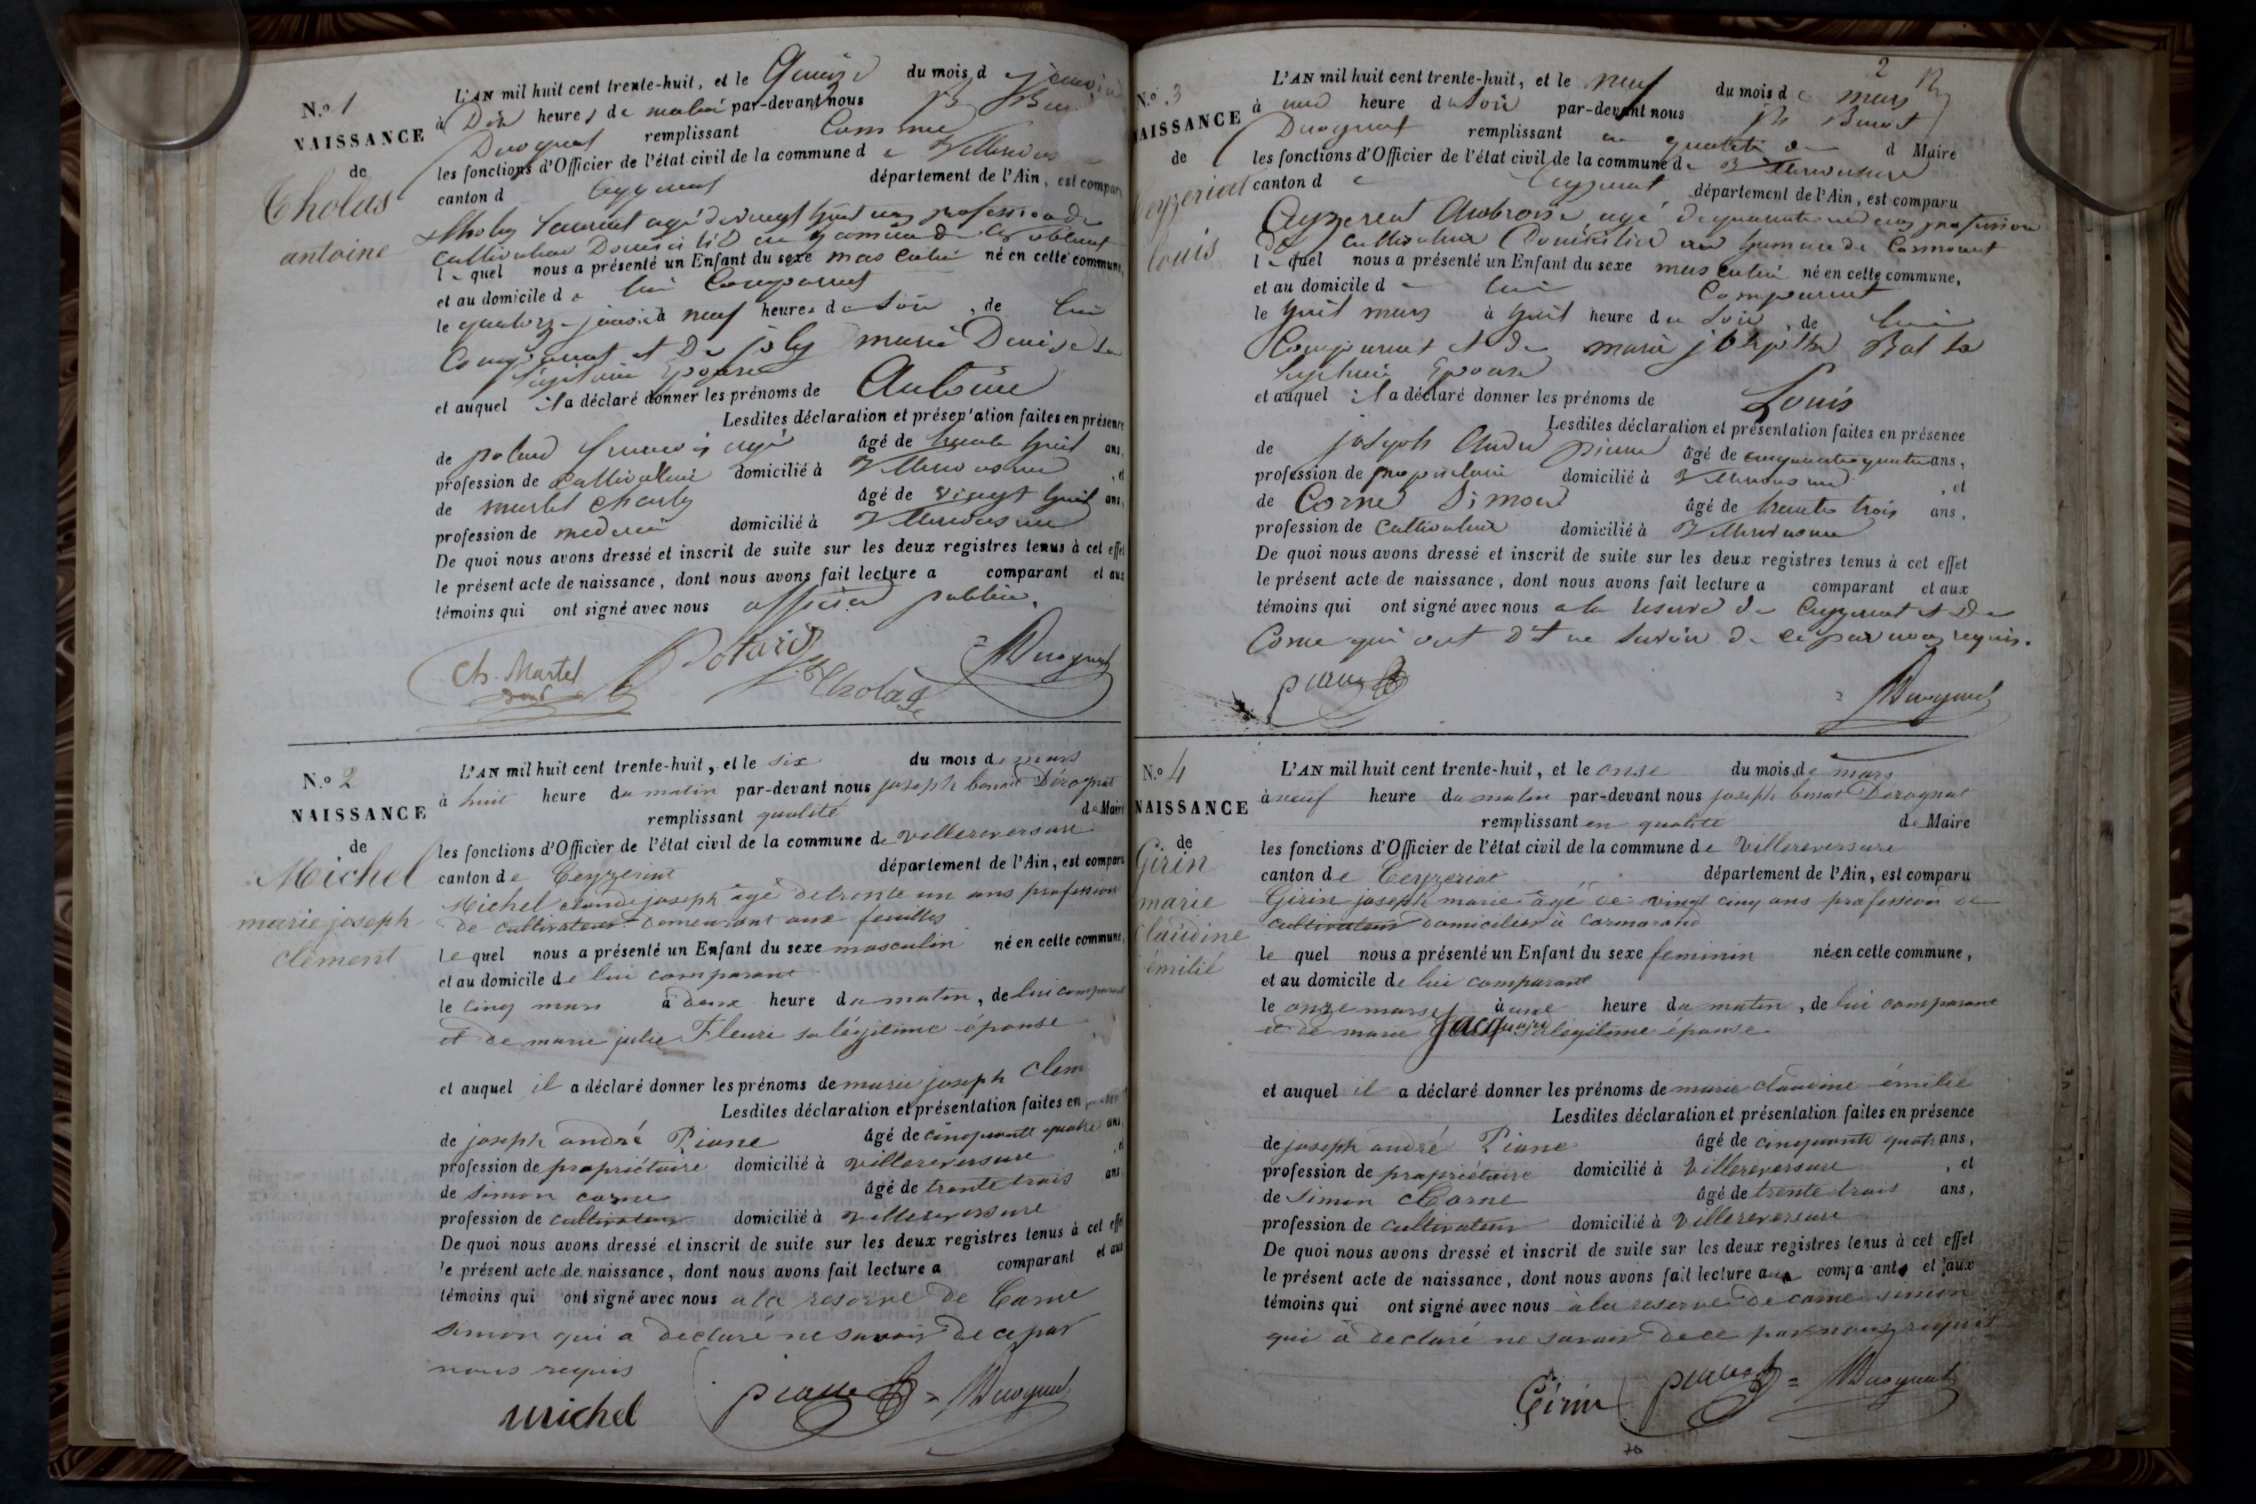 N.o 1
NAISSANCE
de
Tholas
antoine
L'AN mil huit cent trente-huit, et le Quinze du mois d janvier
à Dix heures de matin par-devant nous Jh Benoit
Derognat remplissant Comme
les fonctions d'Officier de l'état civil de la commune de Villereversure
canton d Ceyzeriat département de l'Ain, est comparu
tholas Laurent agé de vingt huit ans profession de
cultivateur Domicilié
le quel nous a présenté un Enfant du sexe masculin né en cette commune,
et au domicile de lui Comparant
le quatorze janvier à neuf heures du soir, de lui
Comparant et De joly marie Denise sa
légitime Epouse
et auquel il a déclaré donner les prénoms de Antoine
Lesdites déclaration et présentation faites en présence
de polard francois agé âgé de trente huit ans,
profession de Cultivateur domicilié à Villereversure, et
de martel charles âgé de vingt huit ans,
profession de medecin domicilié à Villereversure
De quoi nous avons dressé et inscrit de suite sur les deux registres tenus à cet effet
le présent acte de naissance, dont nous avons fait lecture a comparant et aux
témoins qui ont signé avec nous officier publice.
Ch. Martel Polard Derognat
Tholas
N.o 2
NAISSANCE
de
Michel
marie joseph
clément
L'AN mil huit cent trente-huit, et le six du mois de mars
à huit heure du matin par-devant nous joseph benoit Dérognat
remplissant qualité de Maire
les fonctions d'Officier de l'état civil de la commune de villereversure
canton de Ceyzeriat département de l'Ain, est comparu
Michel claude joseph âgé de trente un ans profession
de cultivateur demeurant aux feuilles
le quel nous a présenté un Enfant du sexe masculin né en cette commune,
et au domicile de lui comparant
le cinq mars à deux heure du matin, de lui comparant
et de marie julie Fleurie sa légitime épouse
et auquel il a déclaré donner les prénoms de marie joseph Clem
Lesdites déclaration et présentation faites en
de joseph andré Piane âgé de cinquante quatre ans,
profession de propriétaire domicilié à villereversure, et
de simon corne âgé de trente trois ans
profession de cultivateur domicilié à villereversure
De quoi nous avons dressé et inscrit de suite sur les deux registres tenus à cet effet
le présent acte de naissance, dont nous avons fait lecture a comparant et aux
témoins qui ont signé avec nous a la reserve de Corne
simon qui a declaré ne savoir de ce par
nous requis
Michel piane Derognat
2
N.o 3
NAISSANCE
de
Ceyzeriat
louis
L'AN mil huit cent trente-huit, et le neuf du mois de mars
à une heure du soir par-devant nous Jh Benoit
Derognat remplissant en qualité de d Maire
les fonctions d'Officier de l'état civil de la commune de Villereversure
canton de Ceyzeriat département de l'Ain, est comparu
Ceyzeriat Ambroise, agé de quarante un ans profession
de cultivateur Domicilié au hameau de Carmorant
le quel nous a présenté un Enfant du sexe masculin né en cette commune,
et au domicile de lui Comparant
le huit mars à huit heure du soir, de lui
Comparant et de marie josephte Rat sa
legitime Epouse
et auquel il a déclaré donner les prénoms de Louis
Lesdites déclaration et présentation faites en présence
de joseph André piane âgé de cinquante quatre ans,
profession de propriétaire domicilié à Villereversure, et
de Corne Simon âgé de trente trois ans,
profession de Cultivateur domicilié à Villereversure
De quoi nous avons dressé et inscrit de suite sur les deux registres tenus à cet effet
le présent acte de naissance, dont nous avons fait lecture a comparant et aux
témoins qui ont signé avec nous a la reserve de Ceyzeriat et de
Corne qui ont Dit ne savoir de ce par nous requis.
piane Derognat
N.o 4
NAISSANCE
de
Girin
marie
claudine
émilie
L'AN mil huit cent trente-huit, et le onse du mois de mars
à neuf heure du matin par-devant nous joseph benoit Derognat
remplissant en qualité de Maire
les fonctions d'Officier de l'état civil de la commune de Villereversure
canton de Ceyzeriat département de l'Ain, est comparu
Girin joseph marie âgé de vingt cinq ans profession de
cultivateur domicilier à carmorand
le quel nous a présenté un Enfant du sexe feminin né en cette commune,
et au domicile de lui comparant
le onze mars à une heure du matin, de lui comparant
et de marie légitime épouse
et auquel il a déclaré donner les prénoms de marie claudine émilie
Lesdites déclaration et présentation faites en présence
de joseph andré Piane âgé de cinquante quatr ans,
profession de propriétaire domicilié à Villereversure, et
de Simon Corne âgé de trente trois ans,
profession de cultivateur domicilié à Villereversure
De quoi nous avons dressé et inscrit de suite sur les deux registres tenus à cet effet
le présent acte de naissance, dont nous avons fait lecture aux comparants et aux
témoins qui ont signé avec nous à la reserve de corne simon
qui à declaré ne savoir de ce par nous requis
Girin piane Derognat